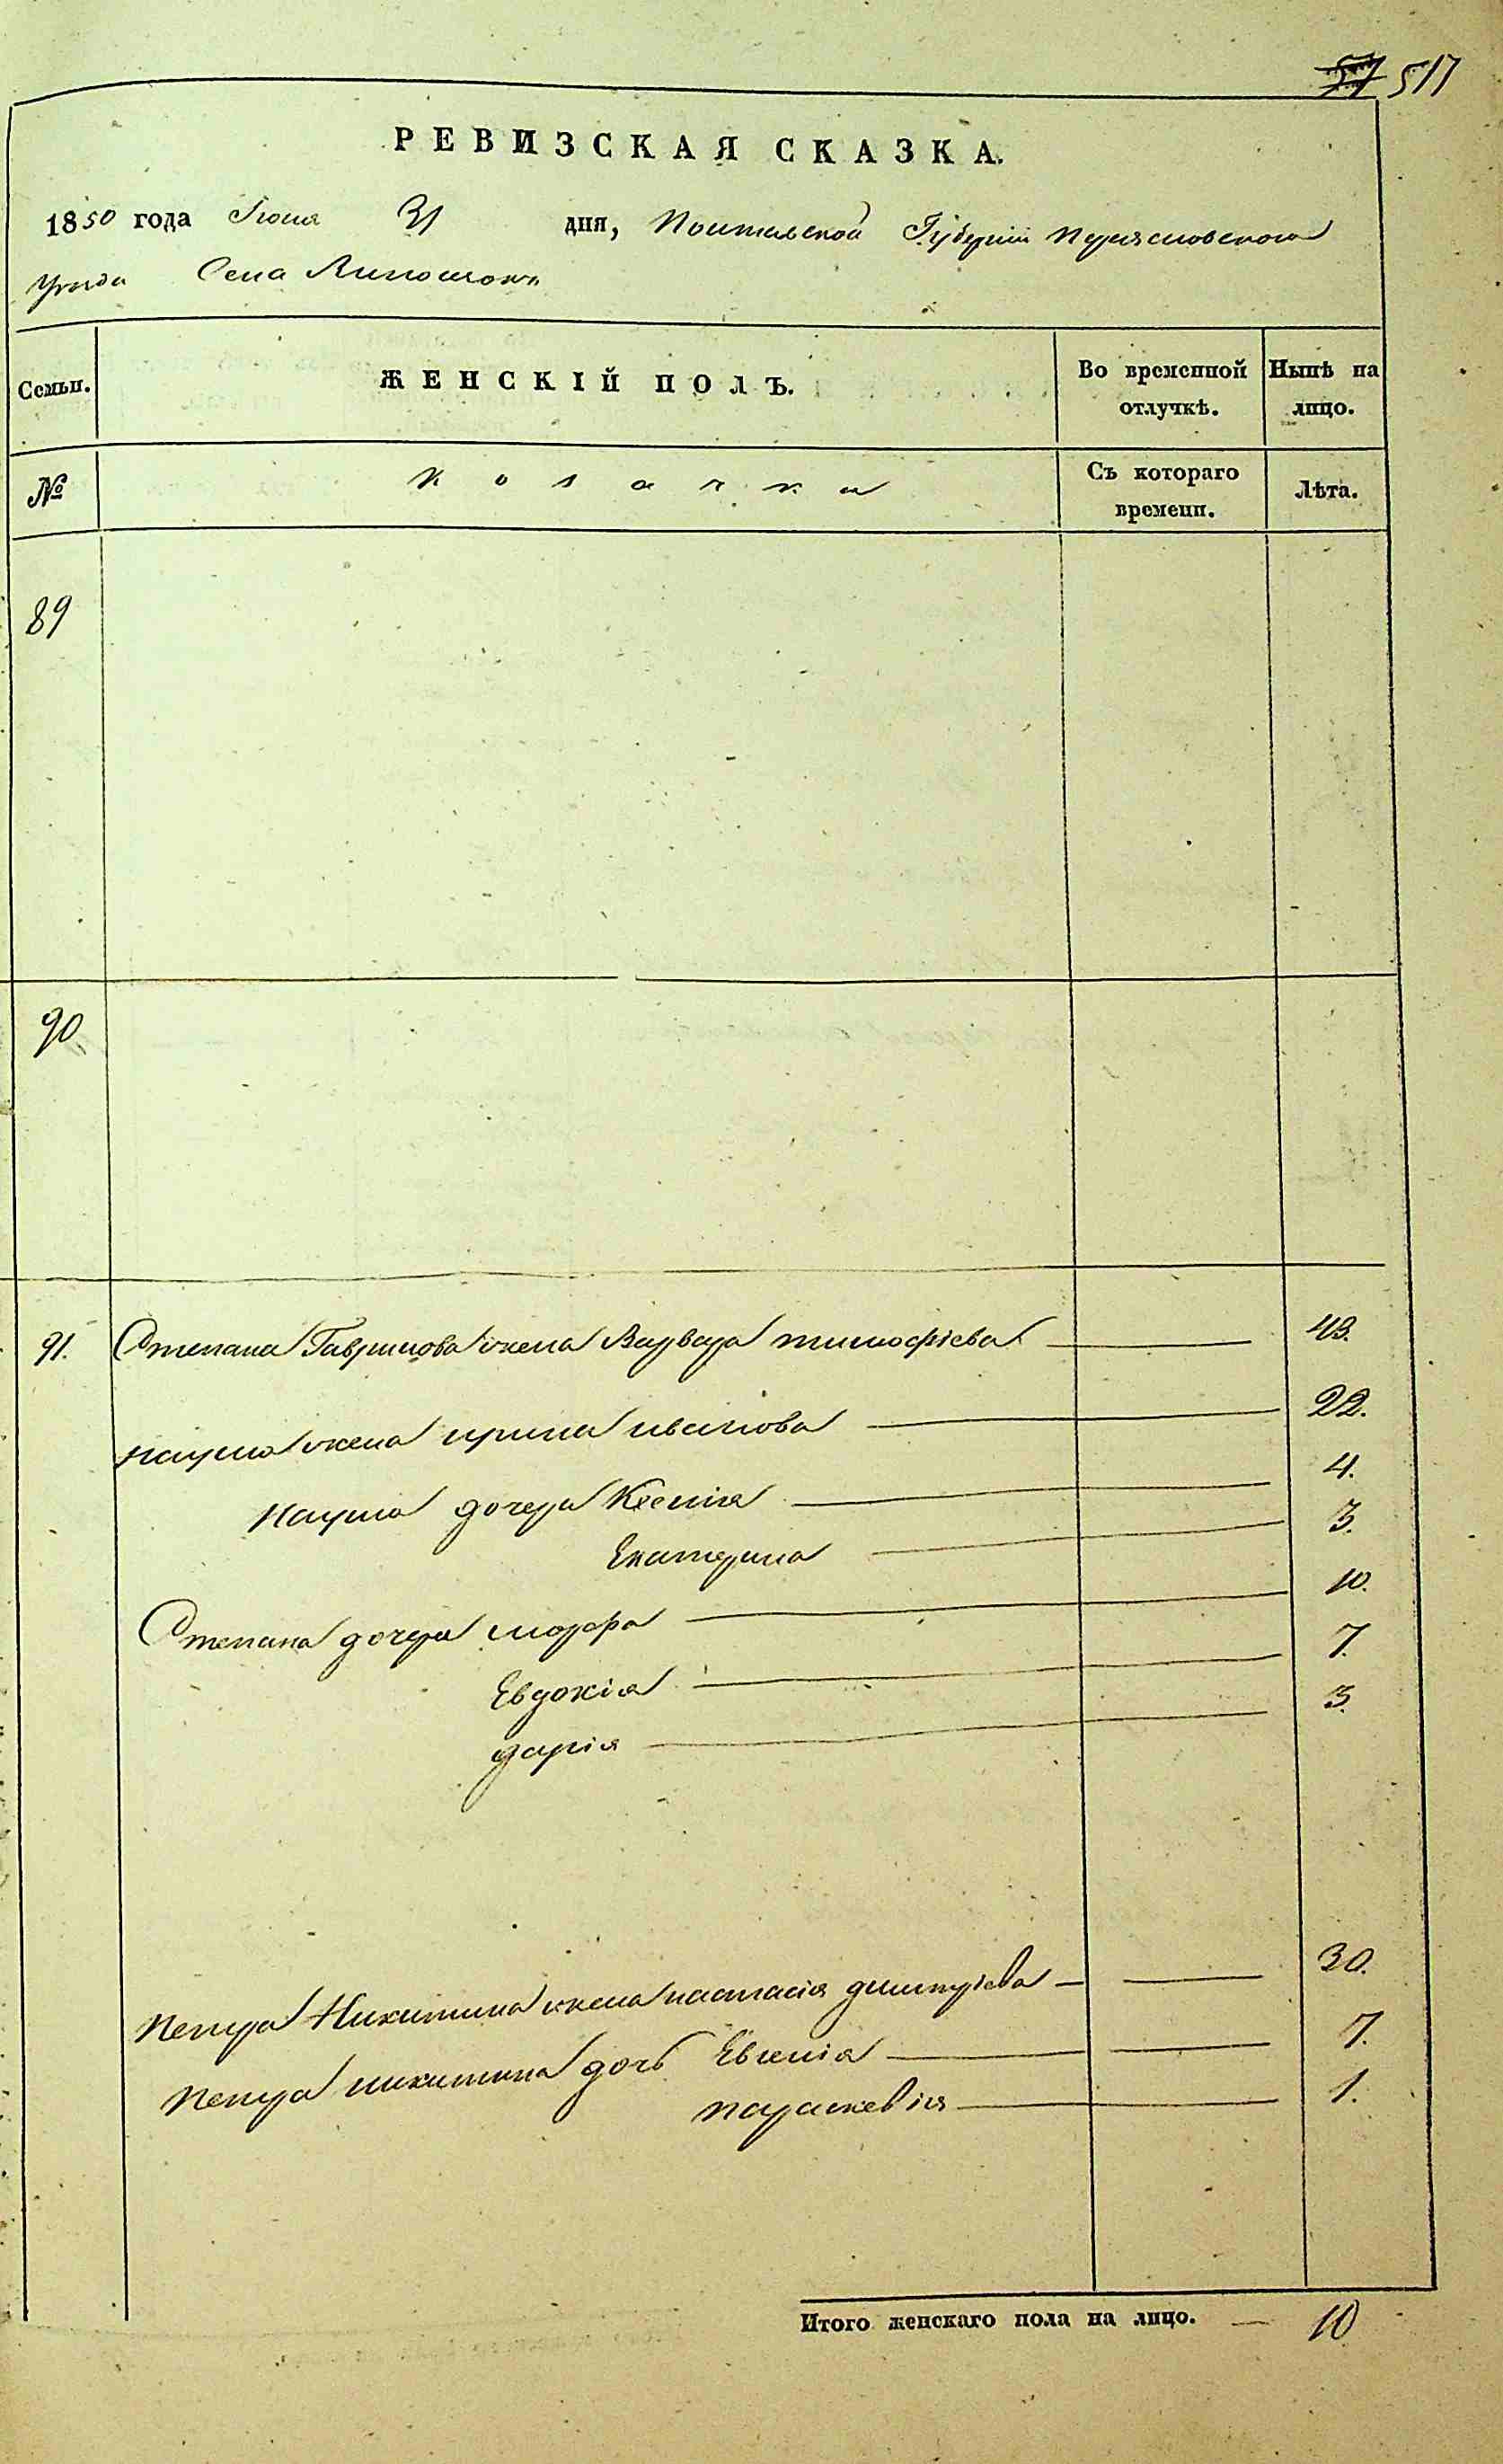 517
РЕВИЗСКАЯ СКАЗКА.
1850 года Іюня дня, Полтавской Губерніи Переясловского
уезда Села
Семьи. ЖЕНСКІЙ ПОЛЪ. Во временной отлучкѣ. Нынѣ на лицо.
№ козачки Съ котораго времени. Лѣта.
89
90
91. Степана Гаврилова жена Варвара тимофіева 43.
наума жена ирина иванова 22.
Наума дочери Ксенія 4.
Екатерина 3.
Степана дочери марфа 10.
Евдокія 7.
дарія 3.
Петра Никитина жена настасія димитріева 30.
Петра никитина дочь Евгенія 7.
параскевія 1.
Итого женскаго пола на лицо. — 10